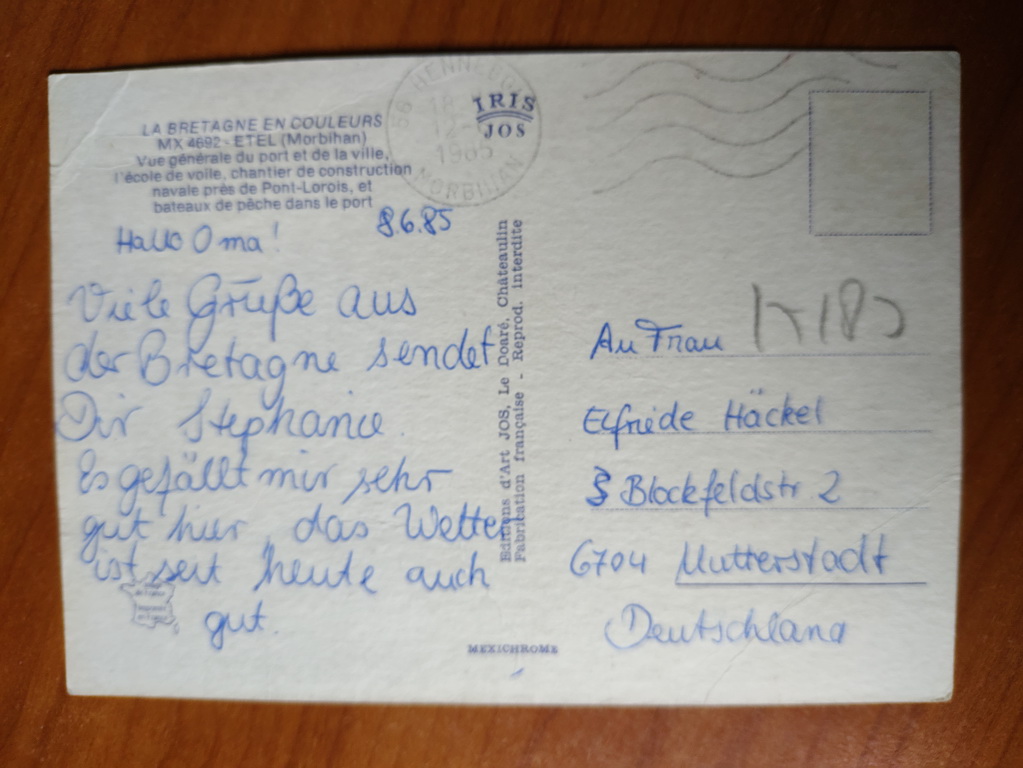 LA BRETAGNE EN COULEURS
MX 4692 - ETEL (Morbihan)
Vue générale du port et de la ville,
l'école de voile, chantier de construction
navale près de Pont-Lorois, et
bateaux de pêche dans le port
IRIS
JOS
1985
MORBIHAN
8.6.85
Hallo Oma!
Viele Grüße aus
der Bretagne sendet
Dir Stephanie.
Es gefällt mir sehr
gut hier, das Wetter
ist seit heute auch
gut.
Editions d'Art JOS, Le Doaré, Châteaulin
Fabrication française - Reprod. interdite
MEXICHROME
An Frau
Elfriede Häckel
Blockfeldstr 2
6704 Mutterstadt
Deutschland